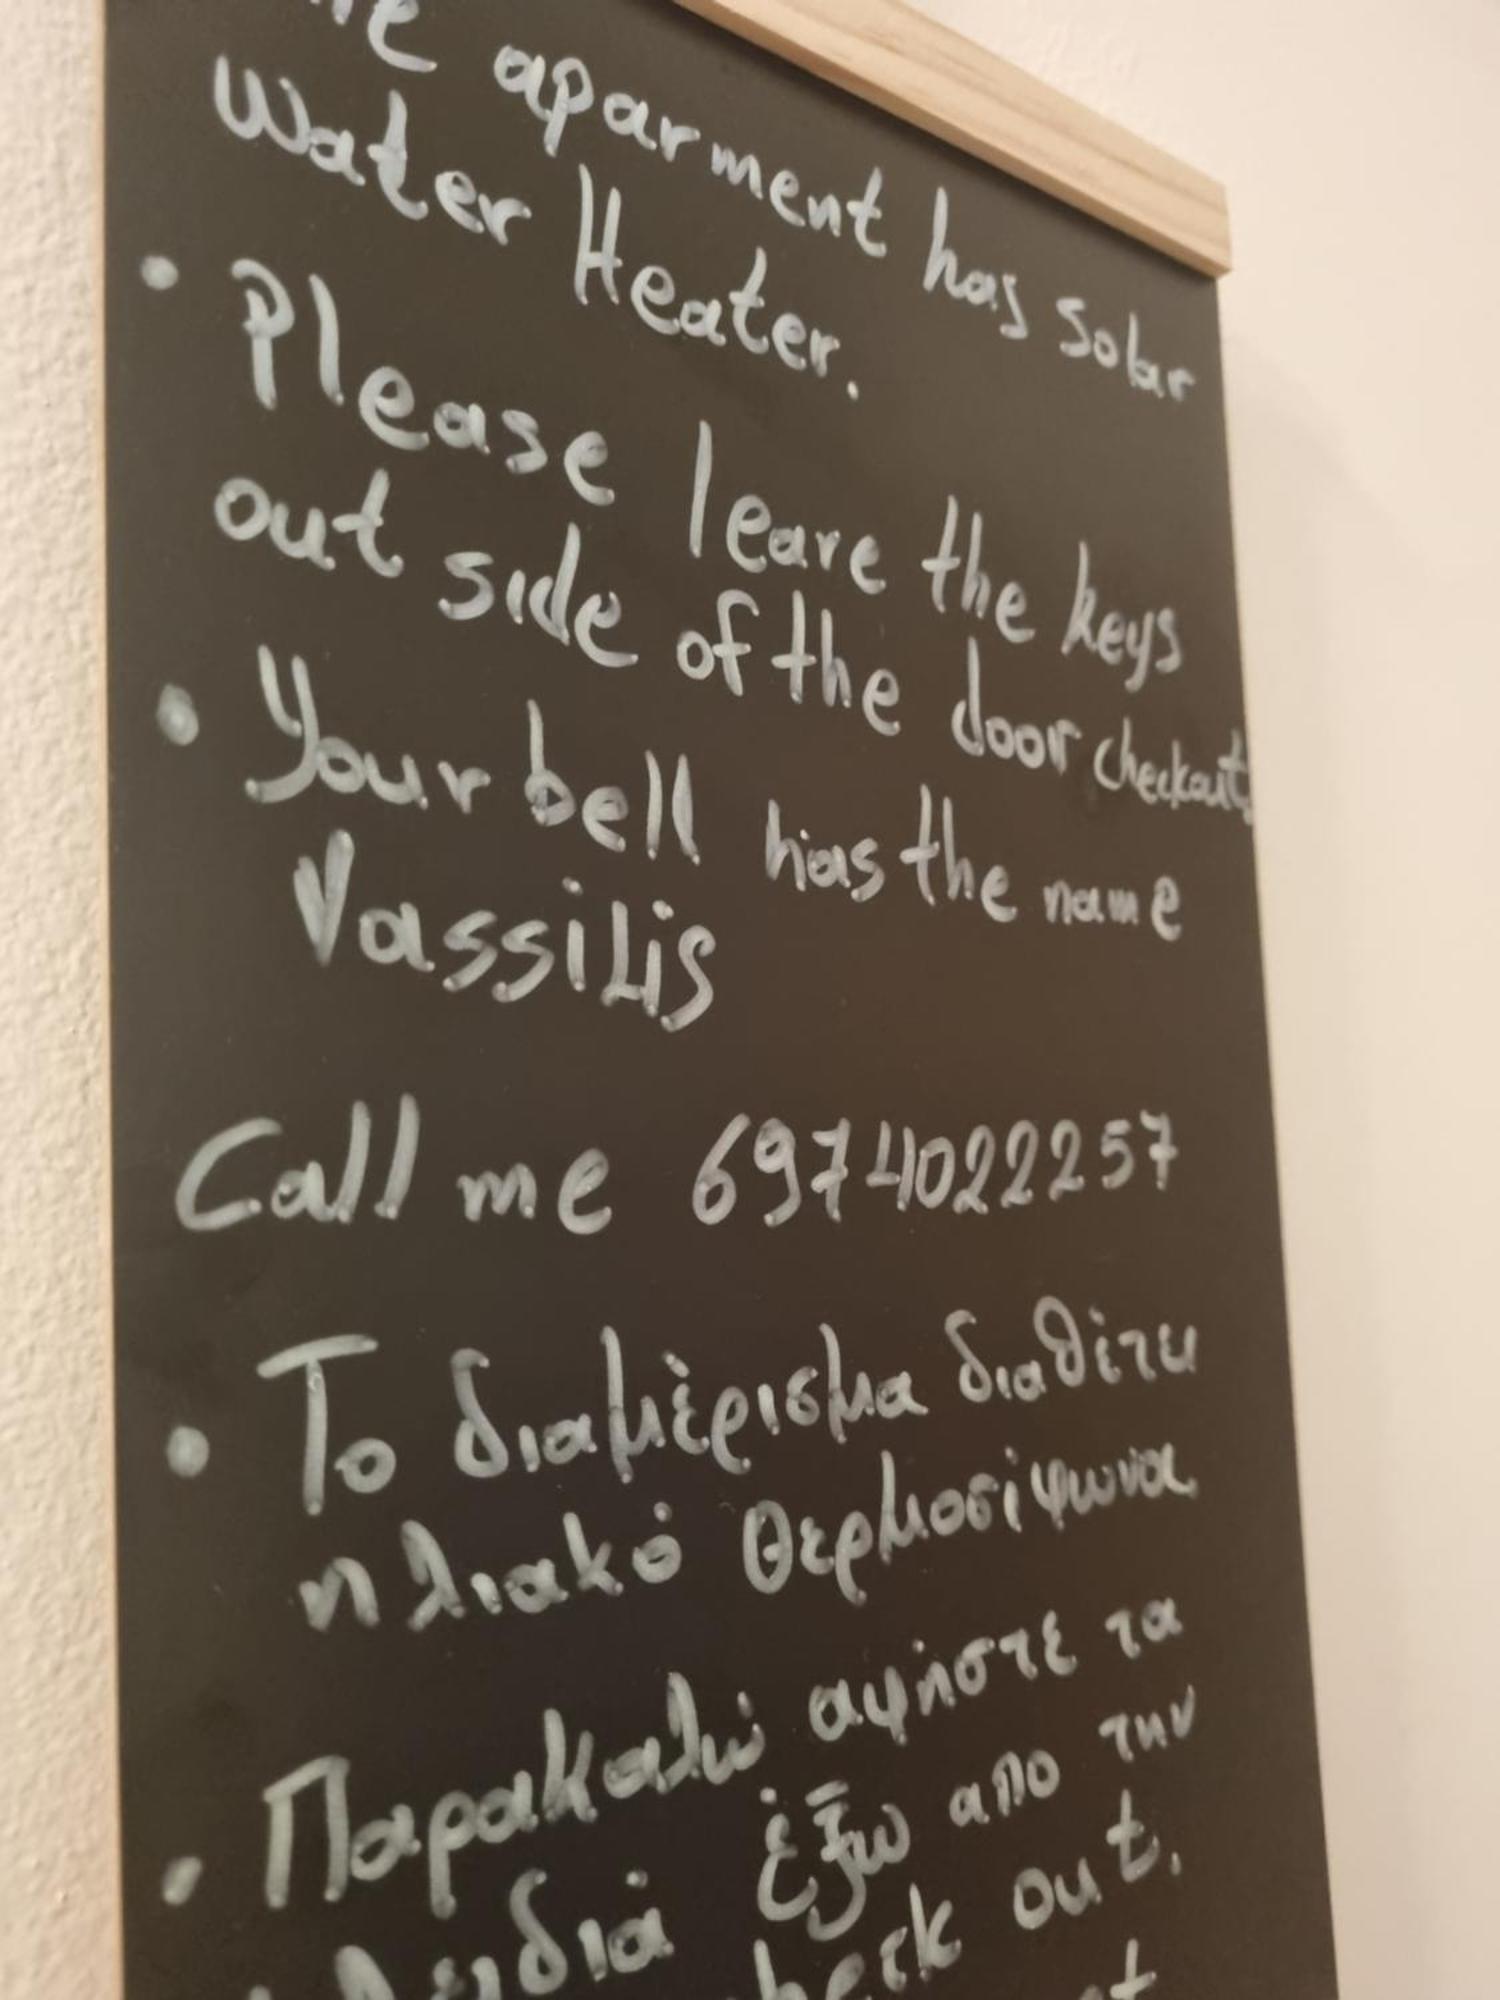 aparment has solar
Water Heater.
• Please leave the keys
out side of the door checkout,
• Your bell has the name
Vassilis
Call me 6974022257
• Το διαμέρισμα διαθέτει
ηλιακό θερμοσίφωνα
• Παρακαλώ αφήστε τα
έξω απο την
out.